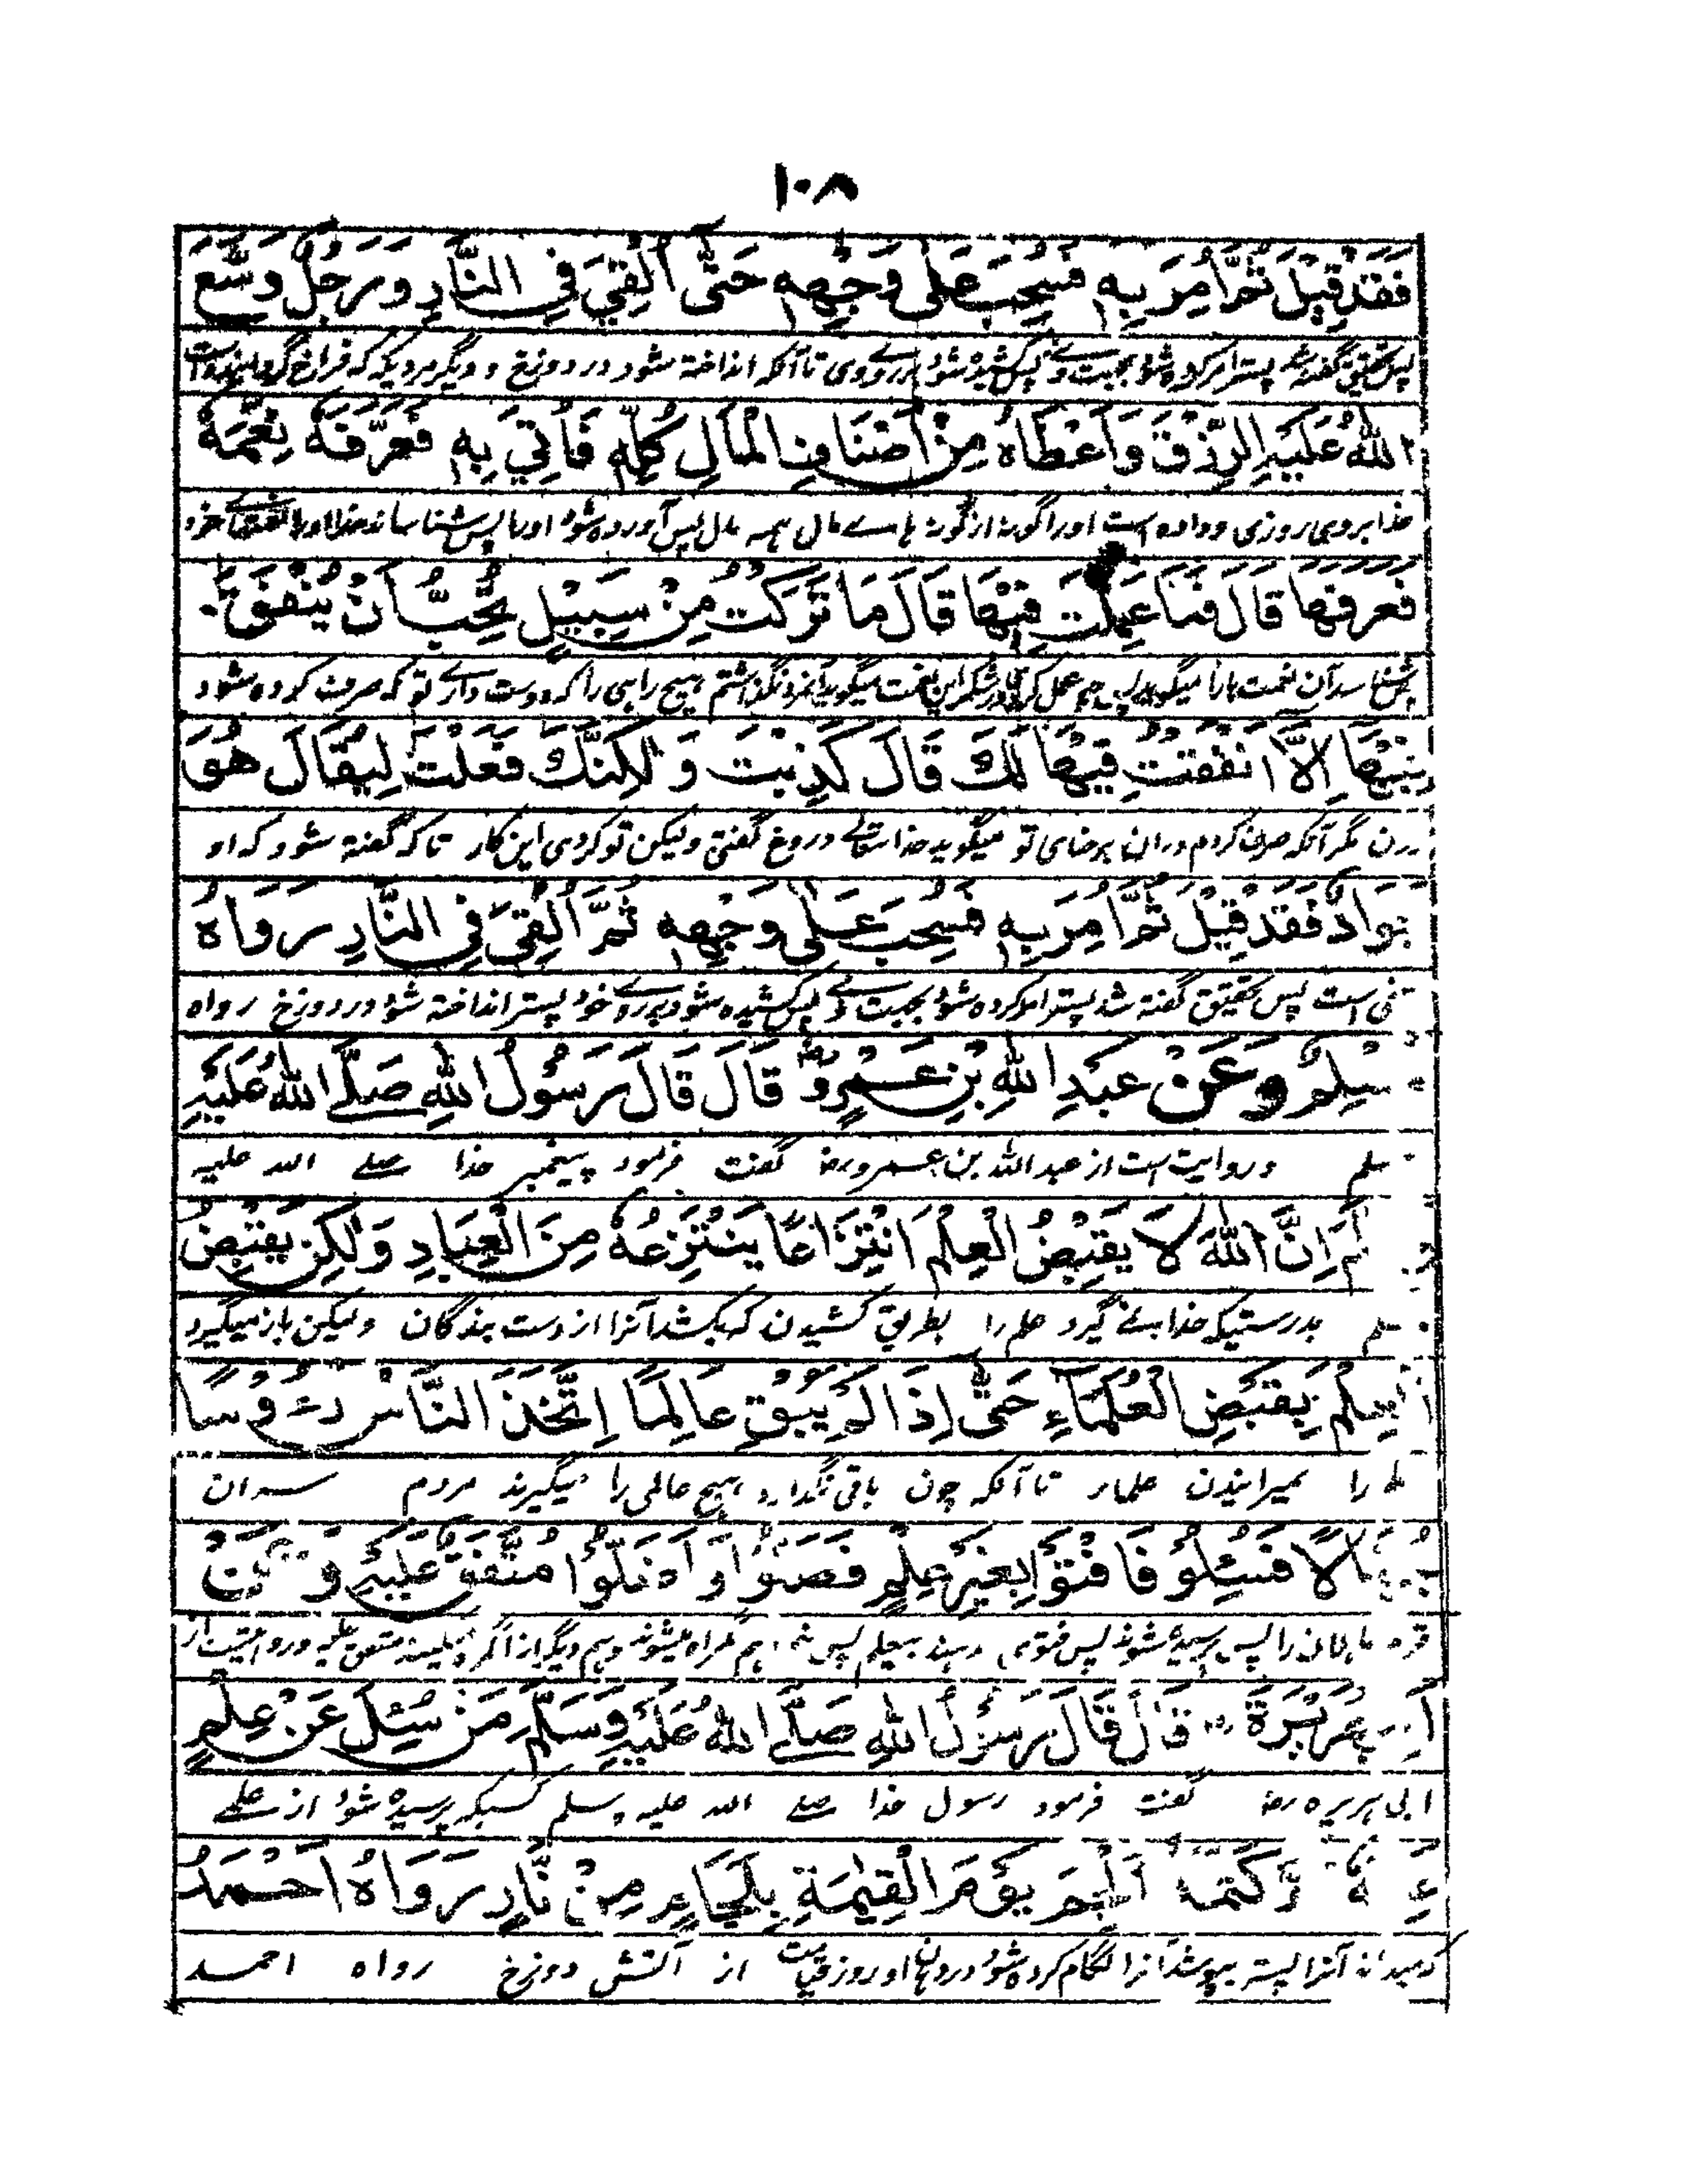 ١٠٨
فَقَدْ قِيْلَ ثُمَّ اُمِرَ بِهٖ فَسُحِبَ عَلٰى وَجْهِهٖ حَتّٰى اُلْقِيَ فِي النَّارِ وَرَجُلٌ وَسَّعَ
پس تحقیق گفته شد پستر امر کرده شود بجهت وے پس کشیده شود بر روی تا آنکه انداخته شود در دوزخ و دیگر مردیکه که فراخ گردانیده است
اللهُ عَلَيْهِ الرِّزْقَ وَاَعْطَاهُ مِنْ اَصْنَافِ الْمَالِ كُلِّهٖ فَاُتِيَ بِهٖ فَعَرَّفَهٗ نِعَمَهٗ
خدا بروی روزی و داده است او را گونه از گونه هاے مال همه مال پس آورده شود او را پس شناساند خدا او را نعمتهاے خود
فَعَرَفَهَا قَالَ فَمَا عَمِلْتَ فِيْهَا قَالَ مَا تَرَكْتُ مِنْ سَبِيْلٍ تُحِبُّ اَنْ يُنْفَقَ
پس شناسد آن نعمت ها را میگوید پس چه عمل کردی در شکر این نعمت میگوید آنمرد نگذاشتم هیچ راهی را که دوست داری تو که صرف کرده شود
فِيْهَا اِلَّا اَنْفَقْتُ فِيْهَا لَكَ قَالَ كَذَبْتَ وَلٰكِنَّكَ فَعَلْتَ لِيُقَالَ هُوَ
دران مگر آنکه صرف کردم دران برضای تو میگوید خداے تعالے دروغ گفتی ولیکن تو کردی این کار تا که گفته شود که او
جَوَادٌ فَقَدْ قِيْلَ ثُمَّ اُمِرَ بِهٖ فَسُحِبَ عَلٰى وَجْهِهٖ ثُمَّ اُلْقِيَ فِي النَّارِ رَوَاهُ
سخی است پس تحقیق گفته شد پستر امر کرده شود بجهت وے پس کشیده شود بر روے خود پستر انداخته شود در دوزخ رواه
مُسْلِمٌ وَعَنْ عَبْدِ اللهِ بْنِ عَمْرٍو رض قَالَ قَالَ رَسُوْلُ اللهِ صَلَّے اللهُ عَلَيْهِ
مسلم و روایت است از عبد الله بن عمرو رضہ گفت فرمود پیغمبر خدا صلے الله علیه
وَسَلَّمَ اِنَّ اللهَ لَا يَقْبِضُ الْعِلْمَ انْتِزَاعًا يَنْتَزِعُهٗ مِنَ الْعِبَادِ وَلٰكِنْ يَقْبِضُ
وسلم بدرستیکه خدا نمے گیرد علم را بطریق کشیدن که بکشد آنرا از دست بندگان ولیکن باز میگیرد
الْعِلْمَ بِقَبْضِ الْعُلَمَاءِ حَتّٰى اِذَا لَمْ يَبْقَ عَالِمًا اِتَّخَذَ النَّاسُ رُءُوْسًا
علم را بمیرانیدن علما تا آنکه چون باقی نگذارد هیچ عالمی را میگیرند مردم سران
جُهَّالًا فَسُئِلُوْ فَاَفْتَوْا بِغَيْرِ عِلْمٍ فَضَلُّوْا وَاَضَلُّوْا مُتَّفَقٌ عَلَيْهِ وَعَنْ
جاهلان را پس پرسیده شوند پس فتوی دهند بیعلم پس هم گمراه میشوند و هم دیگر از گمراه متفق علیه و روایتست از
اَبِي هُرَيْرَةَ رض قَالَ قَالَ رَسُوْلُ اللهِ صَلَّے اللهُ عَلَيْهِ وَسَلَّمَ مَنْ سُئِلَ عَنْ عِلْمٍ
ابی هریره رضہ گفت فرمود رسول خدا صلے الله علیه وسلم کسیکه پرسیده شود از علمے
عَلِمَهٗ ثُمَّ كَتَمَهٗ اُلْجِمَ يَوْمَ الْقِيٰمَةِ بِلِجَامٍ مِنْ نَّارٍ رَوَاهُ اَحْمَدُ
که میداند آنرا پستر بپوشد آنرا لگام کرده شود در دهان او روز قیامت از آتش دوزخ رواه احمد